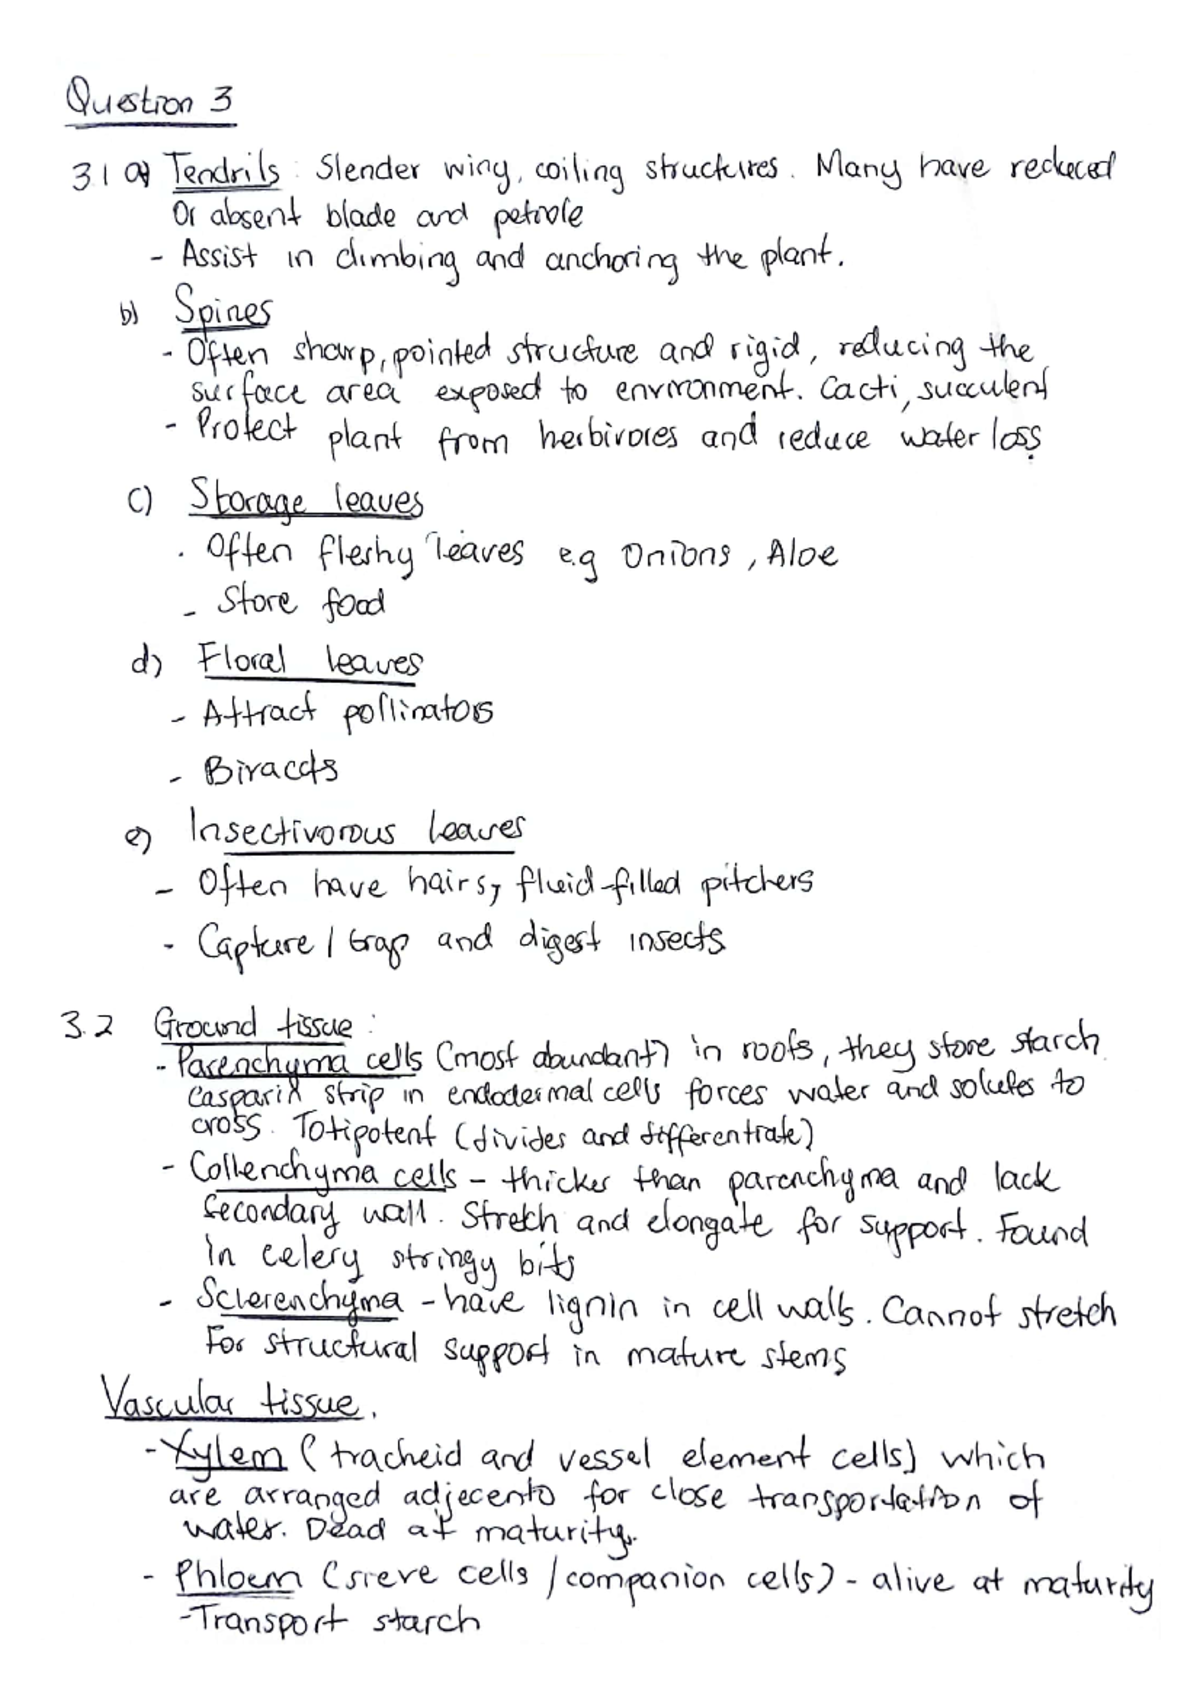 Question 3
3.1 a) Tendrils : Slender wiry, coiling structures. Many have reduced
or absent blade and petiole
- Assist in climbing and anchoring the plant.
b) Spines
- Often sharp, pointed structure and rigid, reducing the
surface area exposed to environment. Cacti, succulent
- Protect plant from herbivores and reduce water loss
c) Storage leaves
. Often fleshy leaves e.g Onions, Aloe
- Store food
d) Floral leaves
- Attract pollinators
- Biracts
e) Insectivorous leaves
- Often have hairs, fluid-filled pitchers
- Capture / trap and digest insects
3.2 Ground tissue :
- Parenchyma cells (most abundant) in roots, they store starch.
Casparix strip in endodermal cells forces water and solutes to
cross. Totipotent (divides and differentiate)
- Collenchyma cells - thicker than parenchyma and lack
secondary wall. Stretch and elongate for support. Found
in celery stringy bits
- Sclerenchyma - have lignin in cell walls. Cannot stretch
For structural support in mature stems
Vascular tissue.
- Xylem (tracheid and vessel element cells) which
are arranged adjecento for close transportation of
water. Dead at maturity.
- Phloem (sieve cells / companion cells) - alive at maturity
- Transport starch